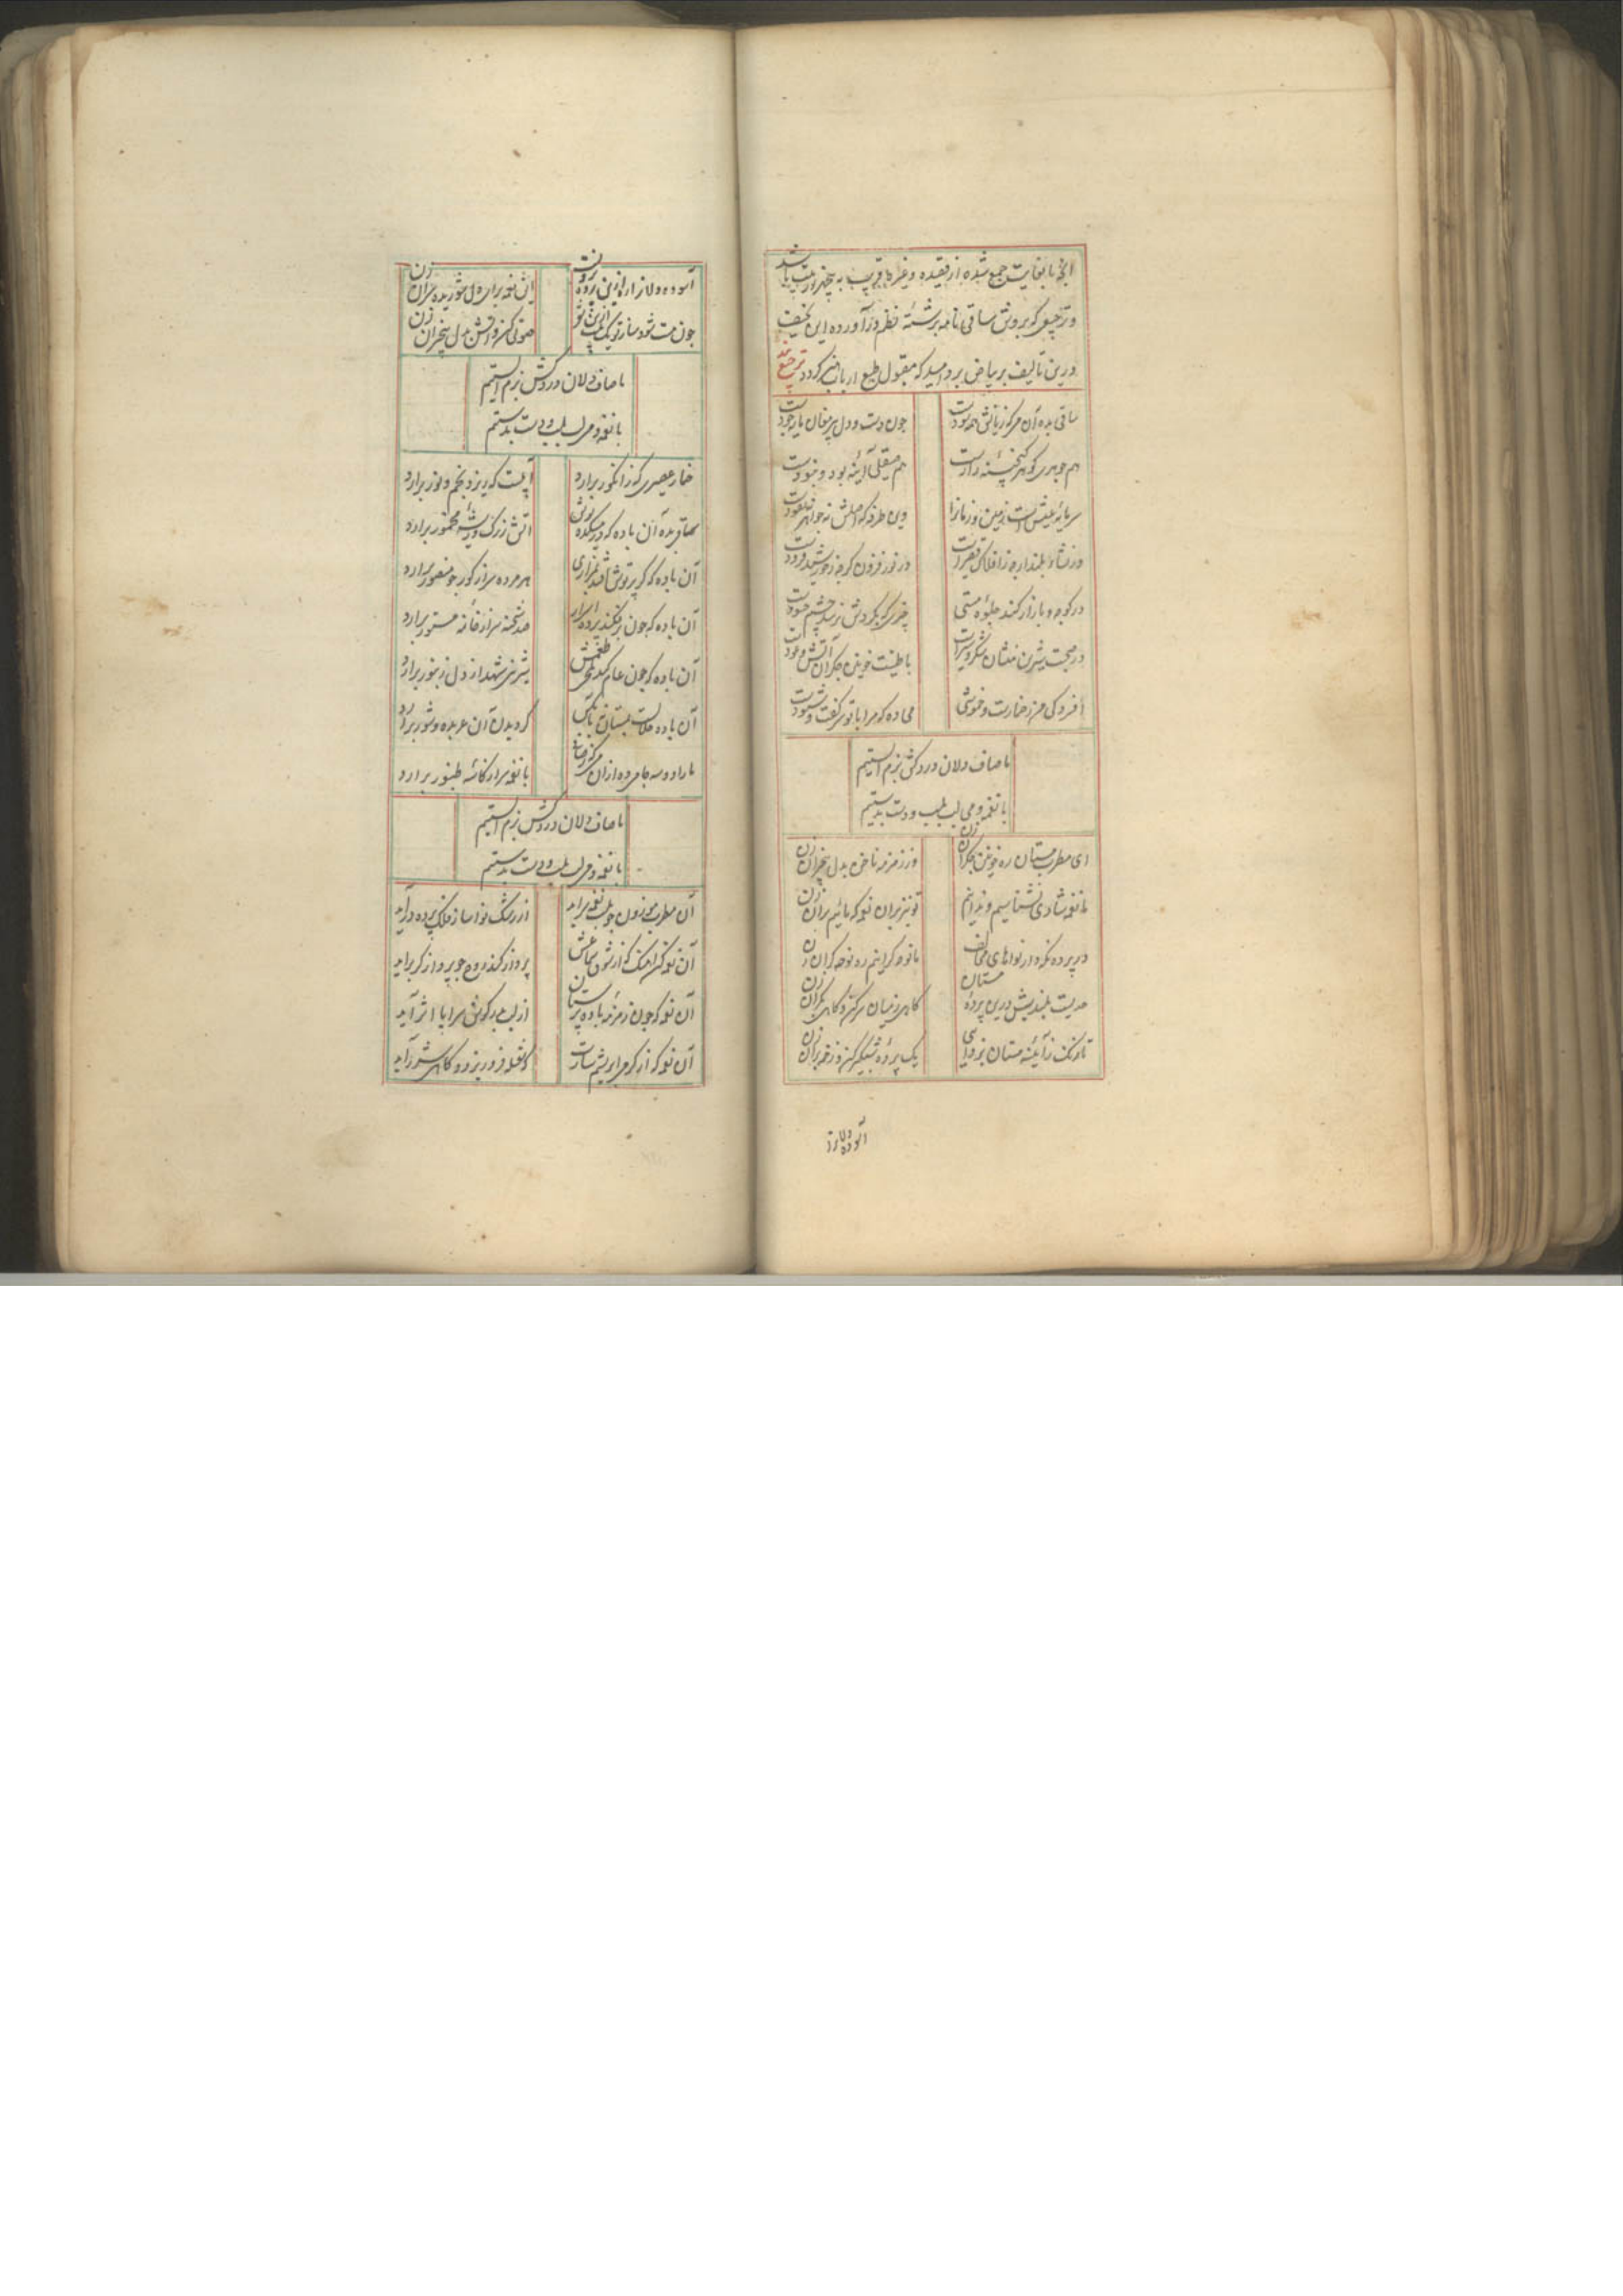 آنچه تا بغایت جمع شده از قصیده و غیرها قریب به پنجهزار بیت باشد
و ترجیعی که بروش ساقی نامه برشته نظم درآورده این نحیف
درین تألیف بر بیاض برد امید که مقبول طبع ارباب گردد ترجیع بند
ساقی بده آن می که زیانش همه سودست
چون دست و دل پیر مغان مایه جودست
هم جوهری گوهر گنجینه رازست
هم صیقلی آینه بود و نبودست
سرمایه عیش است زمین و زمانرا
وین طرفه که اصلش نه جواهر نه نقودست
در نشاء بلندارچه ز افلاک
در نور فزون گرچه ز خورشید فرودست
در کوچه و بازار کند جلوه مستی
چشم حسودست
در صحبت شیرین منشان شکر و شیرست
با طینت خونین جگران آتش و عودست
افسردگی من ز خمارست و خموشی
می ده که مرا با تو سر گفت و شنودست
ما صاف دلان دردکش بزم الستیم
با نغمه و می لب بلب و دست بدستیم
ای مطرب مستان ره خونین جگران زن
وز زمزمه ناخن بدل بیخبران زن
ما نغمه شادی نشناسیم و ندانیم
تو نیز بران نغمه که مائیم بران زن
در پرده نگه دار نواهای مخالف
ما نوحه گرانیم ره نوحه گران زن
حدیست بلندیش درین پرده مستان
گاهی ز میان سر کن و گاهی ز کران زن
تا زنگ ز آیینه مستان بزدایی
یک پرده
آسوده دلانرا
آسوده دلانرا ره ازین پرده برونست
این نغمه برای دل شوریده سران زن
چون مست شود ساز تو یک
صوتی کن و آتش بدل بیخبران زن
ما صاف دلان دردکش بزم الستیم
با نغمه و می لب بلب و دست بدستیم
خمار عصیری که ز انگور برآرد
آبیست که ریزد بخم و نور برآرد
ساقی بده آن باده که در میکده نوش
آتش ز رگ و ریشه مخمور برآرد
آن باده که گر پرتوش افتد بمزاری
هر مرده سر از گور چو منصور برآرد
آن باده که چون برفکند پرده اسرار
صد شحنه سر از خانه مستور برآرد
آن باده که چون عام کند
شیرینی شهد از دل زنبور برآرد
آن باده
گردیدن آن عربده و شور برآرد
ما را دو سه جامی ده ازان می که
با نغمه سر از کاسه طنبور برآرد
ما صاف دلان دردکش بزم الستیم
با نغمه و می لب بلب و دست بدستیم
آن مطرب موزون چو بلب نغمه سراید
از رشک نوا ساز فلک پرده درآید
آن نغمه کن آهنگ که از شوق سماعش
پرواز کند روح چو پرواز گر آید
آن نغمه که چون زمزمه باده پرستان
از لب بدر گوش سراپا اثر آید
آن نغمه که از گرمی ابریشم سازت
گه شعله فرو ریزد و گاهی شرر آید